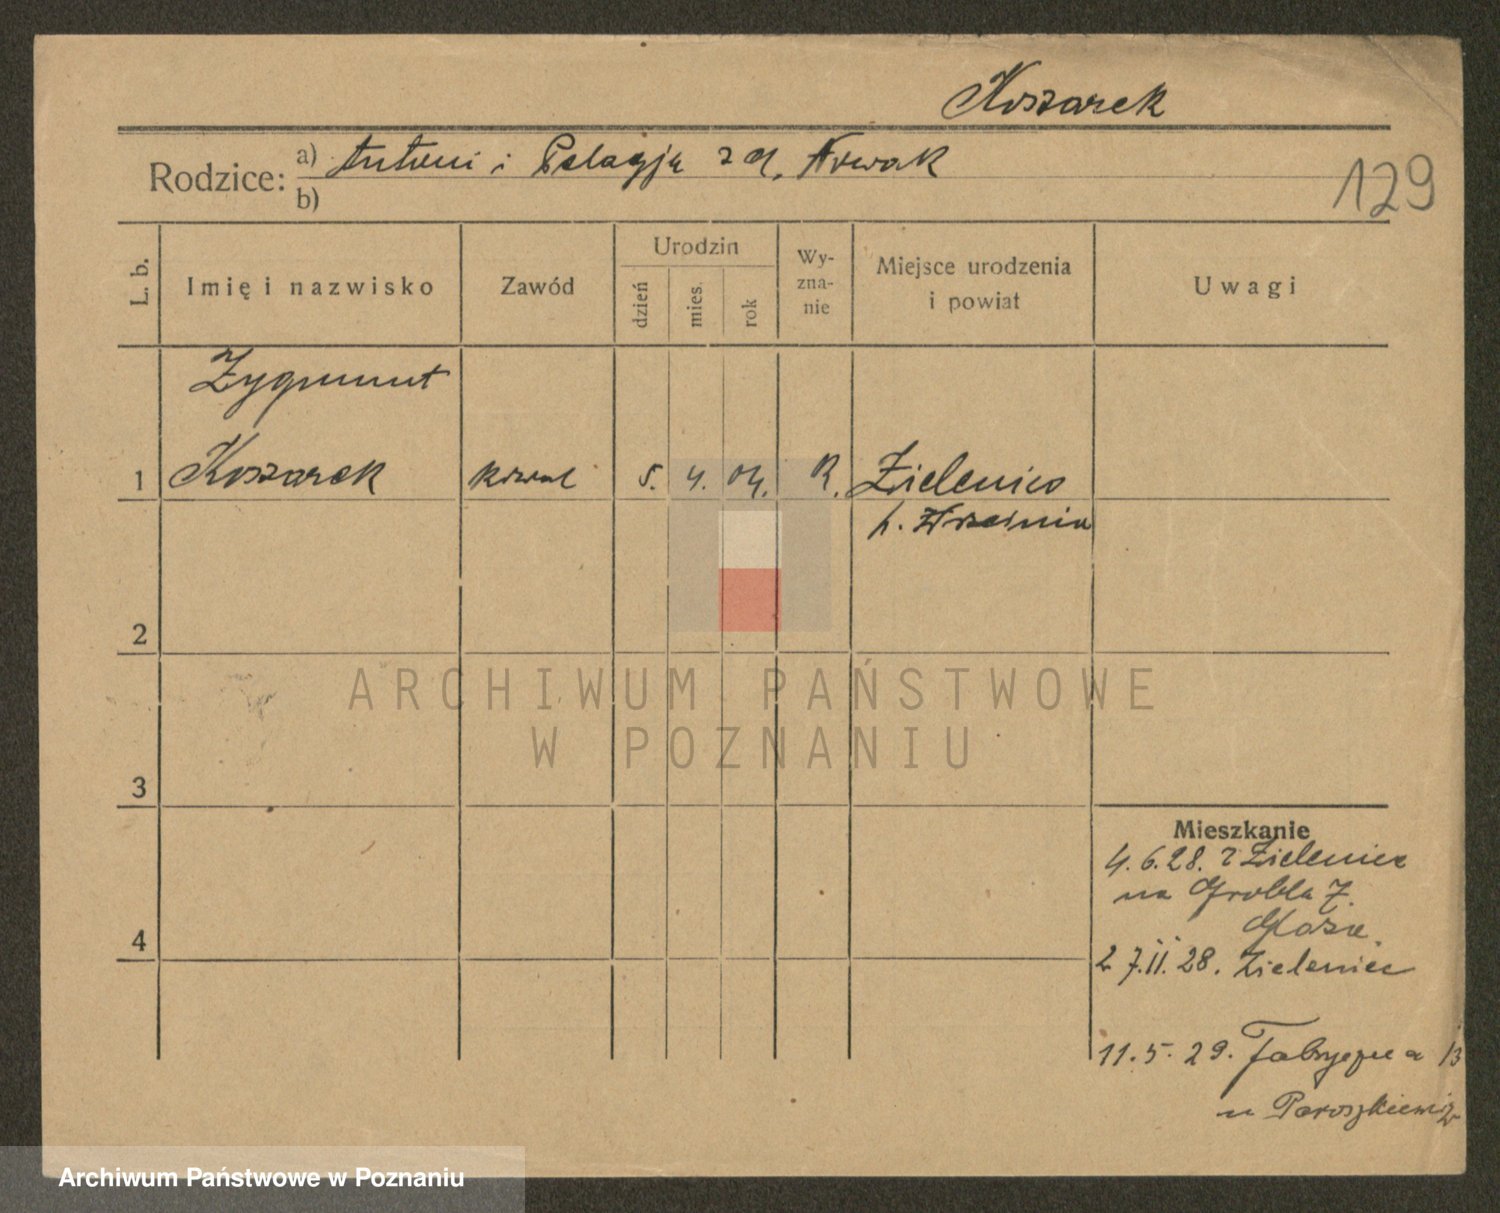 Koszarek
Rodzice: a) Antoni i Pelagja z d. Nowak
b)
129
L. b.
Imię i nazwisko
Zawód
Urodzin
dzień
mies.
rok
Wy-
zna-
nie
Miejsce urodzenia
i powiat
Uwagi
Zygmunt
1 Koszarek kowal 5. 4. 04. R. Zieleniec
p. Września
2
ARCHIWUM PAŃSTWOWE
W POZNANIU
3
Mieszkanie
4.6.28. z Zieleniec
na Grobla 7.
4
27.11.28. Zieleniec
11.5.29. Fabryczna 13
u Paroszkiewicz
Archiwum Państwowe w Poznaniu